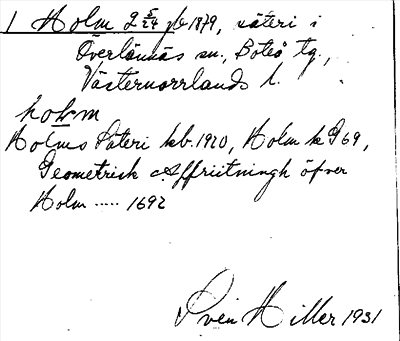 1 Holm 2 5/24 jb 1879, säteri i
Överlännäs sn., Boteå tg.,
Västernorrlands l.
hokm
Holms Säteri kb. 1920, Holm k G 69,
Geometrisk Affriitningh öfver
Holm ..... 1692
Sven Hiller 1931